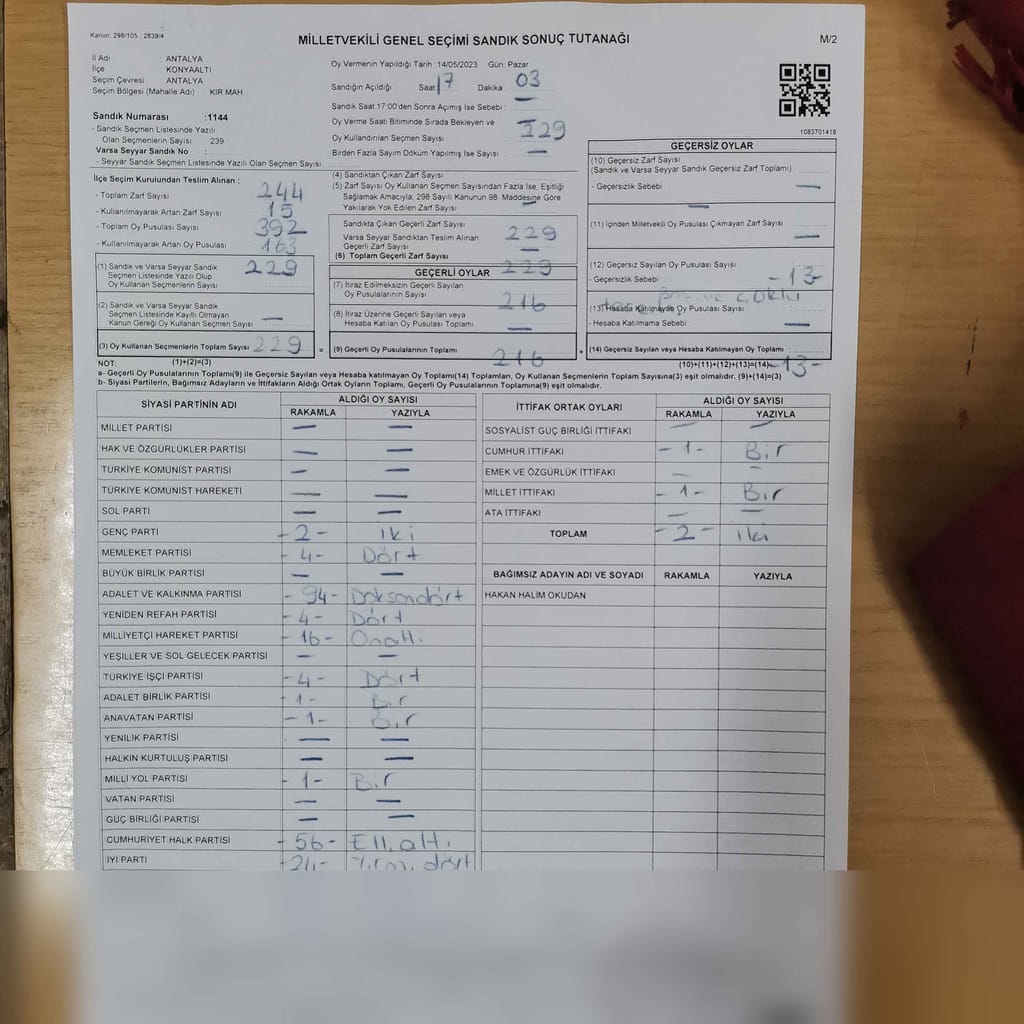 Kanun: 298/105 , 2839/4
MİLLETVEKİLİ GENEL SEÇİMİ SANDIK SONUÇ TUTANAĞI
M/2
İl Adı : ANTALYA
İlçe : KONYAALTI
Seçim Çevresi : ANTALYA
Seçim Bölgesi (Mahalle Adı) : KIR MAH.
Sandık Numarası :1144
- Sandık Seçmen Listesinde Yazılı
Olan Seçmenlerin Sayısı : 239
Varsa Seyyar Sandık No :
- Seyyar Sandık Seçmen Listesinde Yazılı Olan Seçmen Sayısı:
Oy Vermenin Yapıldığı Tarih 14/05/2023 Gün: Pazar
Sandığın Açıldığı Saat 17 Dakika 03
Sandık Saat 17:00'den Sonra Açımış İse Sebebi : —
Oy Verme Saati Bitiminde Sırada Bekleyen ve
Oy Kullandırılan Seçmen Sayısı : 229
Birden Fazla Sayım Döküm Yapılmış İse Sayısı : —
1083701418
İlçe Seçim Kurulundan Teslim Alınan :
- Toplam Zarf Sayısı : 244
- Kullanılmayarak Artan Zarf Sayısı : 15
- Toplam Oy Pusulası Sayısı : 392
- Kullanılmayarak Artan Oy Pusulası : 163
(1) Sandık ve Varsa Seyyar Sandık
Seçmen Listesinde Yazılı Olup
Oy Kullanan Seçmenlerin Sayısı : 229
(2) Sandık ve Varsa Seyyar Sandık
Seçmen Listesinde Kayıtlı Olmayan
Kanun Gereği Oy Kullanan Seçmen Sayısı : —
(3) Oy Kullanan Seçmenlerin Toplam Sayısı : 229
(4) Sandıktan Çıkan Zarf Sayısı :
(5) Zarf Sayısı Oy Kullanan Seçmen Sayısından Fazla İse, Eşitliği
Sağlamak Amacıyla; 298 Sayılı Kanunun 98. Maddesine Göre
Yakılarak Yok Edilen Zarf Sayısı : —
Sandıkta Çıkan Geçerli Zarf Sayısı : 229
Varsa Seyyar Sandıktan Teslim Alınan
Geçerli Zarf Sayısı : —
(6) Toplam Geçerli Zarf Sayısı : 229
GEÇERLİ OYLAR
(7) İtiraz Edilmeksizin Geçerli Sayılan
Oy Pusulalarının Sayısı : 216
(8) İtiraz Üzerine Geçerli Sayılan veya
Hesaba Katılan Oy Pusulası Toplamı : —
(9) Geçerli Oy Pusulalarının Toplamı : 216
GEÇERSİZ OYLAR
(10) Geçersiz Zarf Sayısı
(Sandık ve Varsa Seyyar Sandık Geçersiz Zarf Toplamı) :
- Geçersizlik Sebebi : —
(11) İçinden Milletvekili Oy Pusulası Çıkmayan Zarf Sayısı : —
(12) Geçersiz Sayılan Oy Pusulası Sayısı : -13-
- Geçersizlik Sebebi :
(13) Hesaba Katılmayan Oy Pusulası Sayısı :
- Hesaba Katılmama Sebebi : —
(14) Geçersiz Sayılan veya Hesaba Katılmayan Oy Toplamı : -13-
NOT: (1)+(2)=(3) (10)+(11)+(12)+(13)=(14)
a- Geçerli Oy Pusulalarının Toplamı(9) ile Geçersiz Sayılan veya Hesaba katılmayan Oy Toplamı(14) Toplamları, Oy Kullanan Seçmenlerin Toplam Sayısına(3) eşit olmalıdır. (9)+(14)=(3)
b- Siyasi Partilerin, Bağımsız Adayların ve İttifakların Aldığı Ortak Oyların Toplamı, Geçerli Oy Pusulalarının Toplamına(9) eşit olmalıdır.
SİYASİ PARTİNİN ADI ALDIĞI OY SAYISI
RAKAMLA YAZIYLA
MİLLET PARTİSİ — —
HAK VE ÖZGÜRLÜKLER PARTİSİ — —
TÜRKİYE KOMÜNİST PARTİSİ — —
TÜRKİYE KOMÜNİST HAREKETİ — —
SOL PARTİ — —
GENÇ PARTİ -2- iki
MEMLEKET PARTİSİ -4- Dört
BÜYÜK BİRLİK PARTİSİ — —
ADALET VE KALKINMA PARTİSİ -94- Doksandört
YENİDEN REFAH PARTİSİ -4- Dört
MİLLİYETÇİ HAREKET PARTİSİ -16- Onaltı
YEŞİLLER VE SOL GELECEK PARTİSİ — —
TÜRKİYE İŞÇİ PARTİSİ -4- Dört
ADALET BİRLİK PARTİSİ -1- Bir
ANAVATAN PARTİSİ -1- Bir
YENİLİK PARTİSİ — —
HALKIN KURTULUŞ PARTİSİ — —
MİLLİ YOL PARTİSİ -1- Bir
VATAN PARTİSİ — —
GÜÇ BİRLİĞİ PARTİSİ — —
CUMHURİYET HALK PARTİSİ -56- Elli altı
İYİ PARTİ -24- Yirmi dört
İTTİFAK ORTAK OYLARI ALDIĞI OY SAYISI
RAKAMLA YAZIYLA
SOSYALİST GÜÇ BİRLİĞİ İTTİFAKI — —
CUMHUR İTTİFAKI -1- Bir
EMEK VE ÖZGÜRLÜK İTTİFAKI — —
MİLLET İTTİFAKI -1- Bir
ATA İTTİFAKI — —
TOPLAM -2- iki
BAĞIMSIZ ADAYIN ADI VE SOYADI RAKAMLA YAZIYLA
HAKAN HALİM OKUDAN